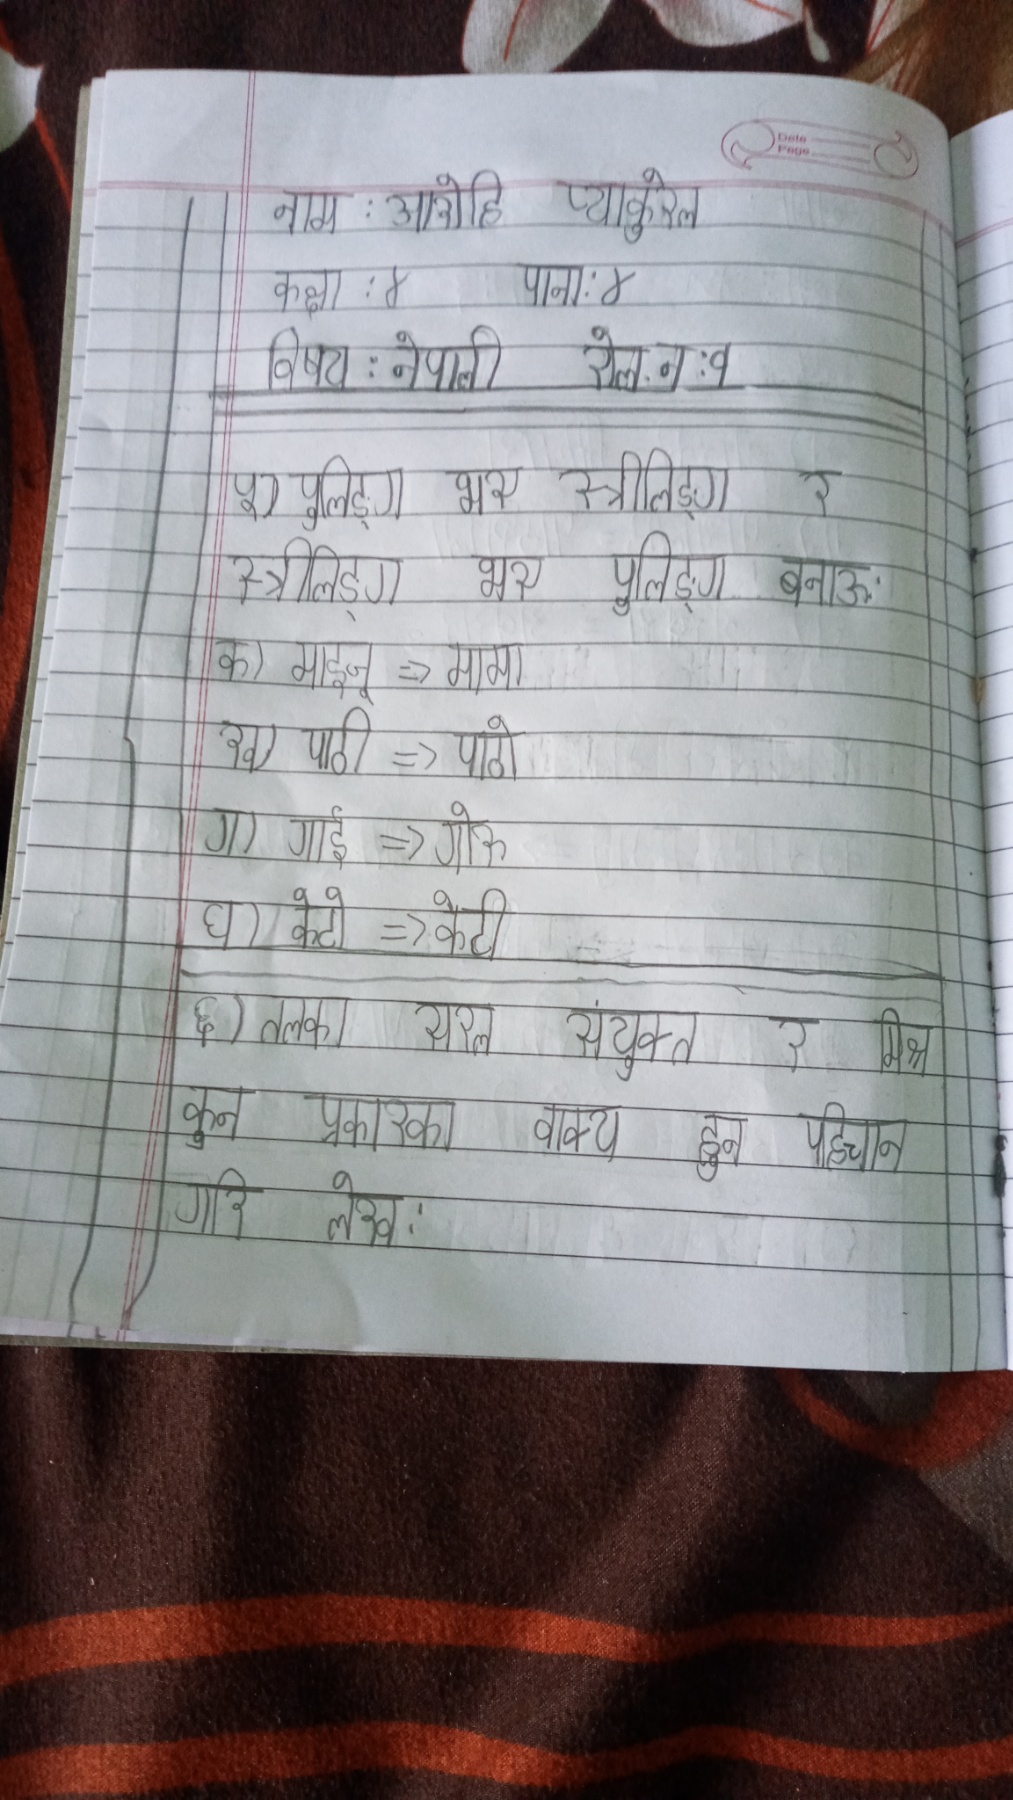 Date
Page
नाम : आरोहि प्याकुरेल
कक्षा : ४ पाना: ४
विषय : नेपाली रोल.न : १
५) पुलिङ्ग भए स्त्रीलिङ्ग र
स्त्रीलिङ्ग भए पुलिङ्ग बनाऊ:
क) माइजू => मामा
ख) पाठी => पाठो
ग) गाई => गोरू
घ) केटो => केटी
६) तलका सरल संयुक्त र मिश्र
कुन प्रकारका वाक्य हुन पहिचान
गरि लेख :